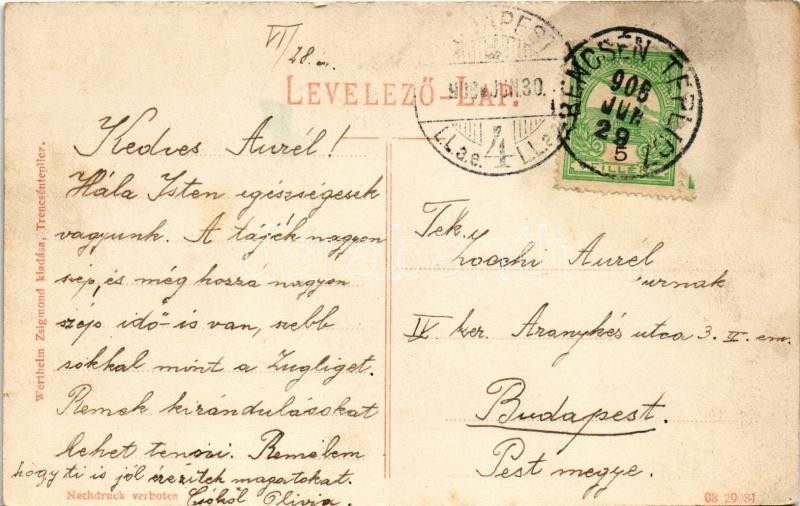 VI/28.-án.
LEVELEZŐ-LAP.
BUDAPEST
906 JUN.30.
4
TRENCSÉN TEPLICZ
906
JUN
29
5
FILLÉR
Kedves Aurél!
Hála Isten egészségesek
vagyunk. A tájék nagyon
szép, és még hozzá nagyon
szép idő is van, szebb
sokkal mint a Zugliget.
Remek kirándulásokat
lehet tenni. Remélem
hogy ti is jól érezitek magatokat.
Csókol Olivia.
Tek.
Zocchi Aurél
urnak
IV ker. Aranykéz utca 3. II. em.
Budapest.
Pest megye.
Wertheim Zsigmond kiadása, Trencsénteplicz.
Nachdruck verboten
08 29081